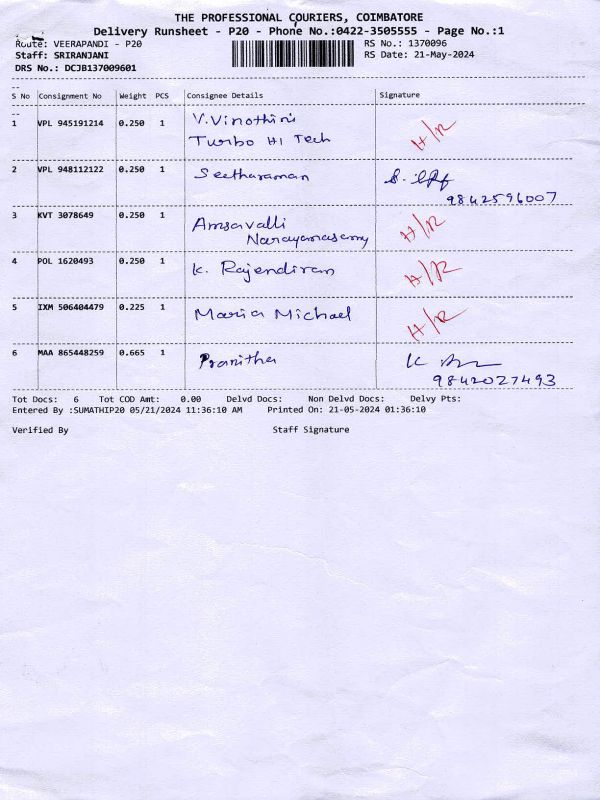 THE PROFESSIONAL COURIERS, COIMBATORE
Delivery Runsheet - P20 - Phone No.:0422-3505555 - Page No.:1
Route: VEERAPANDI - P20 RS No.: 1370096
Staff: SRIRANJANI RS Date: 21-May-2024
DRS No.: DCJB137009601
S No Consignment No Weight PCS Consignee Details Signature
1 VPL 945191214 0.250 1 V.Vinothini H/R
Turbo HI Tech
2 VPL 948112122 0.250 1 Seetharaman
9842596007
3 KVT 3078649 0.250 1 Amsavalli H/R
Narayanasamy
4 POL 1620493 0.250 1 K. Rajendiran H/R
5 IXM 506404479 0.225 1 Maria Michael H/R
6 MAA 865448259 0.665 1 Pranitha
9842027493
Tot Docs: 6 Tot COD Amt: 0.00 Delvd Docs: Non Delvd Docs: Delvy Pts:
Entered By :SUMATHIP20 05/21/2024 11:36:10 AM Printed On: 21-05-2024 01:36:10
Verified By Staff Signature